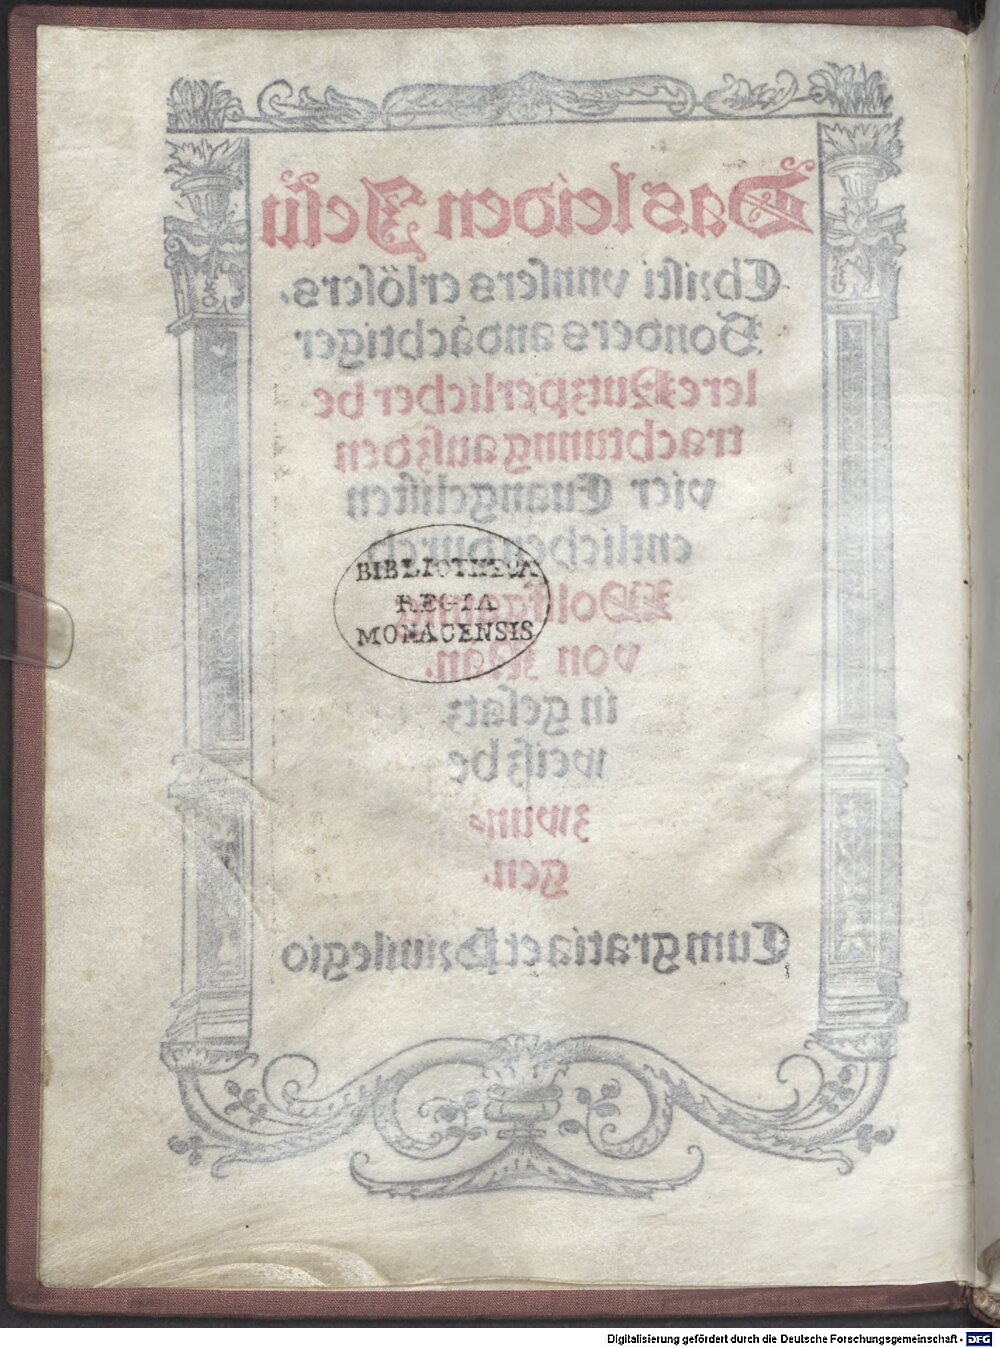 Das leiden Jesu
Christi vnnsers erlösers.
Sonders andächtiger
lere Nutzperlicher be
trachtunng auß den
vier Euangelisten
entlichen durch
Wolfganng
von Man.
in gesatz
weiß be
zwun⸗
gen.
Cum gratia et Priuilegio
BIBLIOTHECA
REGIA
MONACENSIS
Digitalisierung gefördert durch die Deutsche Forschungsgemeinschaft - DFG